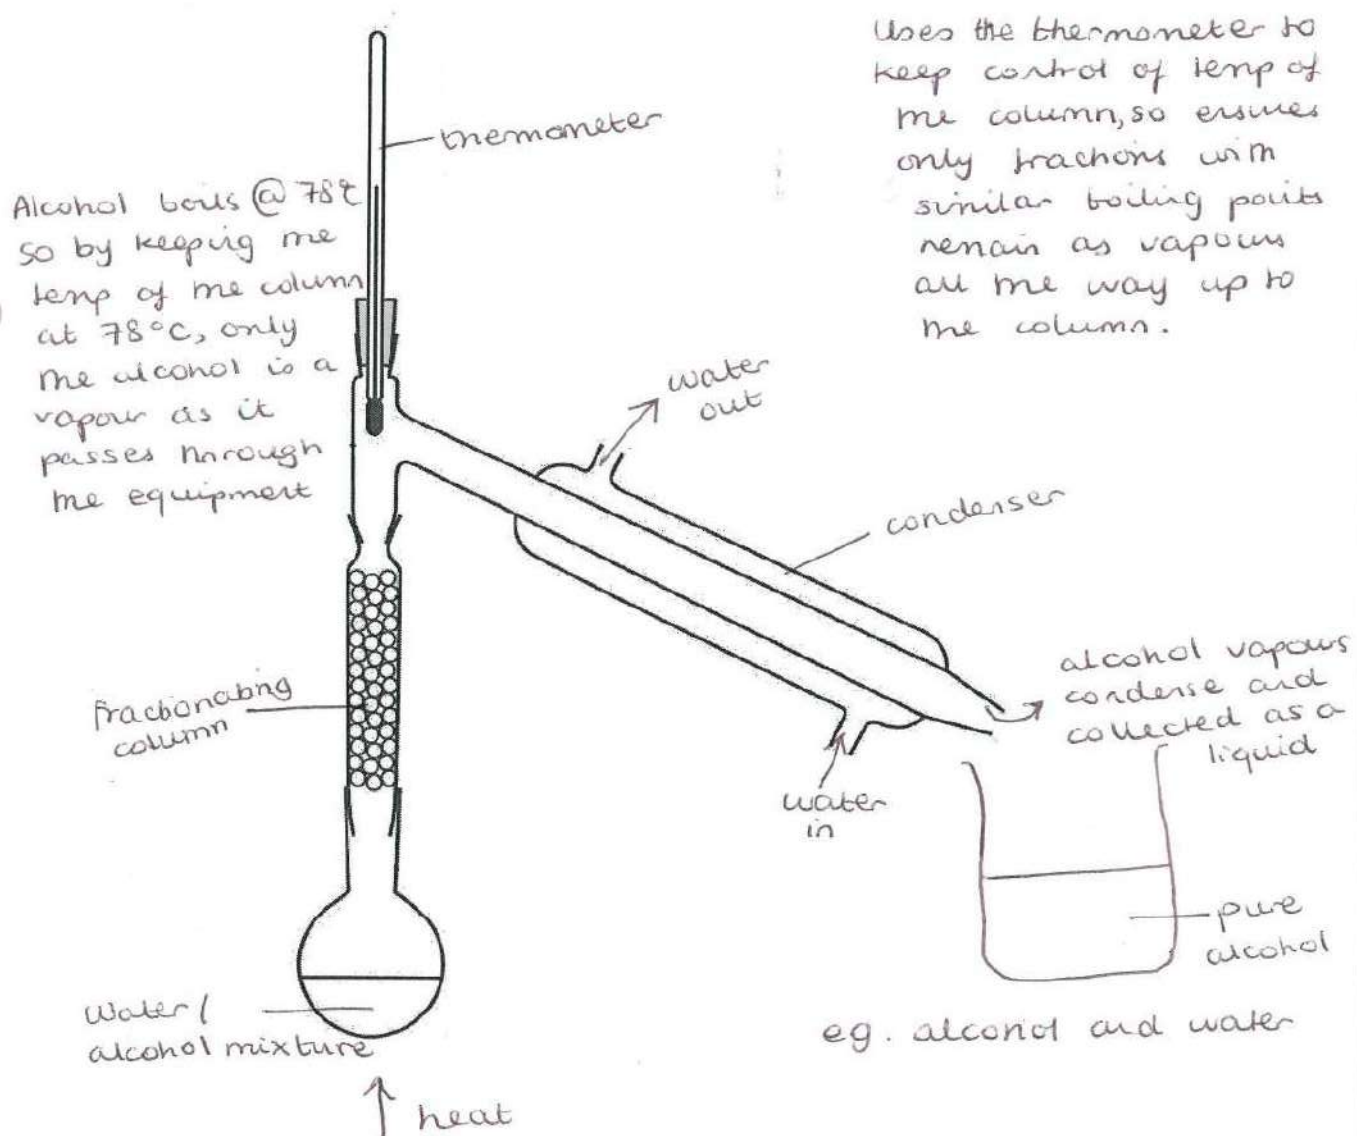 Uses the thermometer to
keep control of temp of
the column, so ensures
only fractions with
similar boiling points
remain as vapours
all the way up to
the column.
themometer
Alcohol boils @ 78°C
so by keeping the
temp of the column
at 78°C, only
the alcohol is a
vapour as it
passes through
the equipment
water
out
condenser
alcohol vapours
condense and
collected as a
liquid
fractionating
column
water
in
pure
alcohol
water/
alcohol mixture
eg. alcohol and water
heat